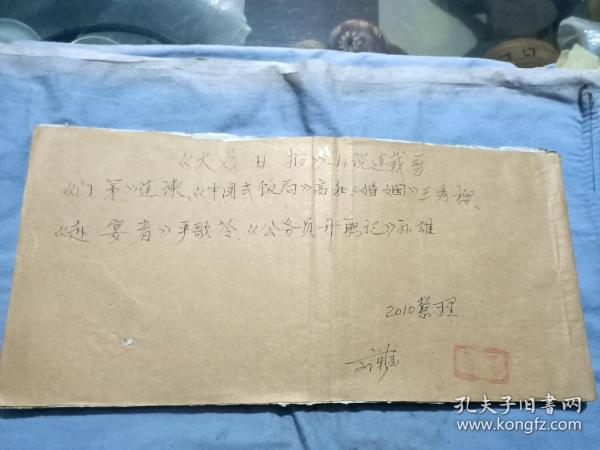 《大众日报》小说连载剪
《门第》连谏、《中国式饭局》高和《婚姻》王秀梅、
《赴宴者》严歌苓、《公务员升职记》孔雄
2010整理
孔夫子旧书网
www.kongfz.com